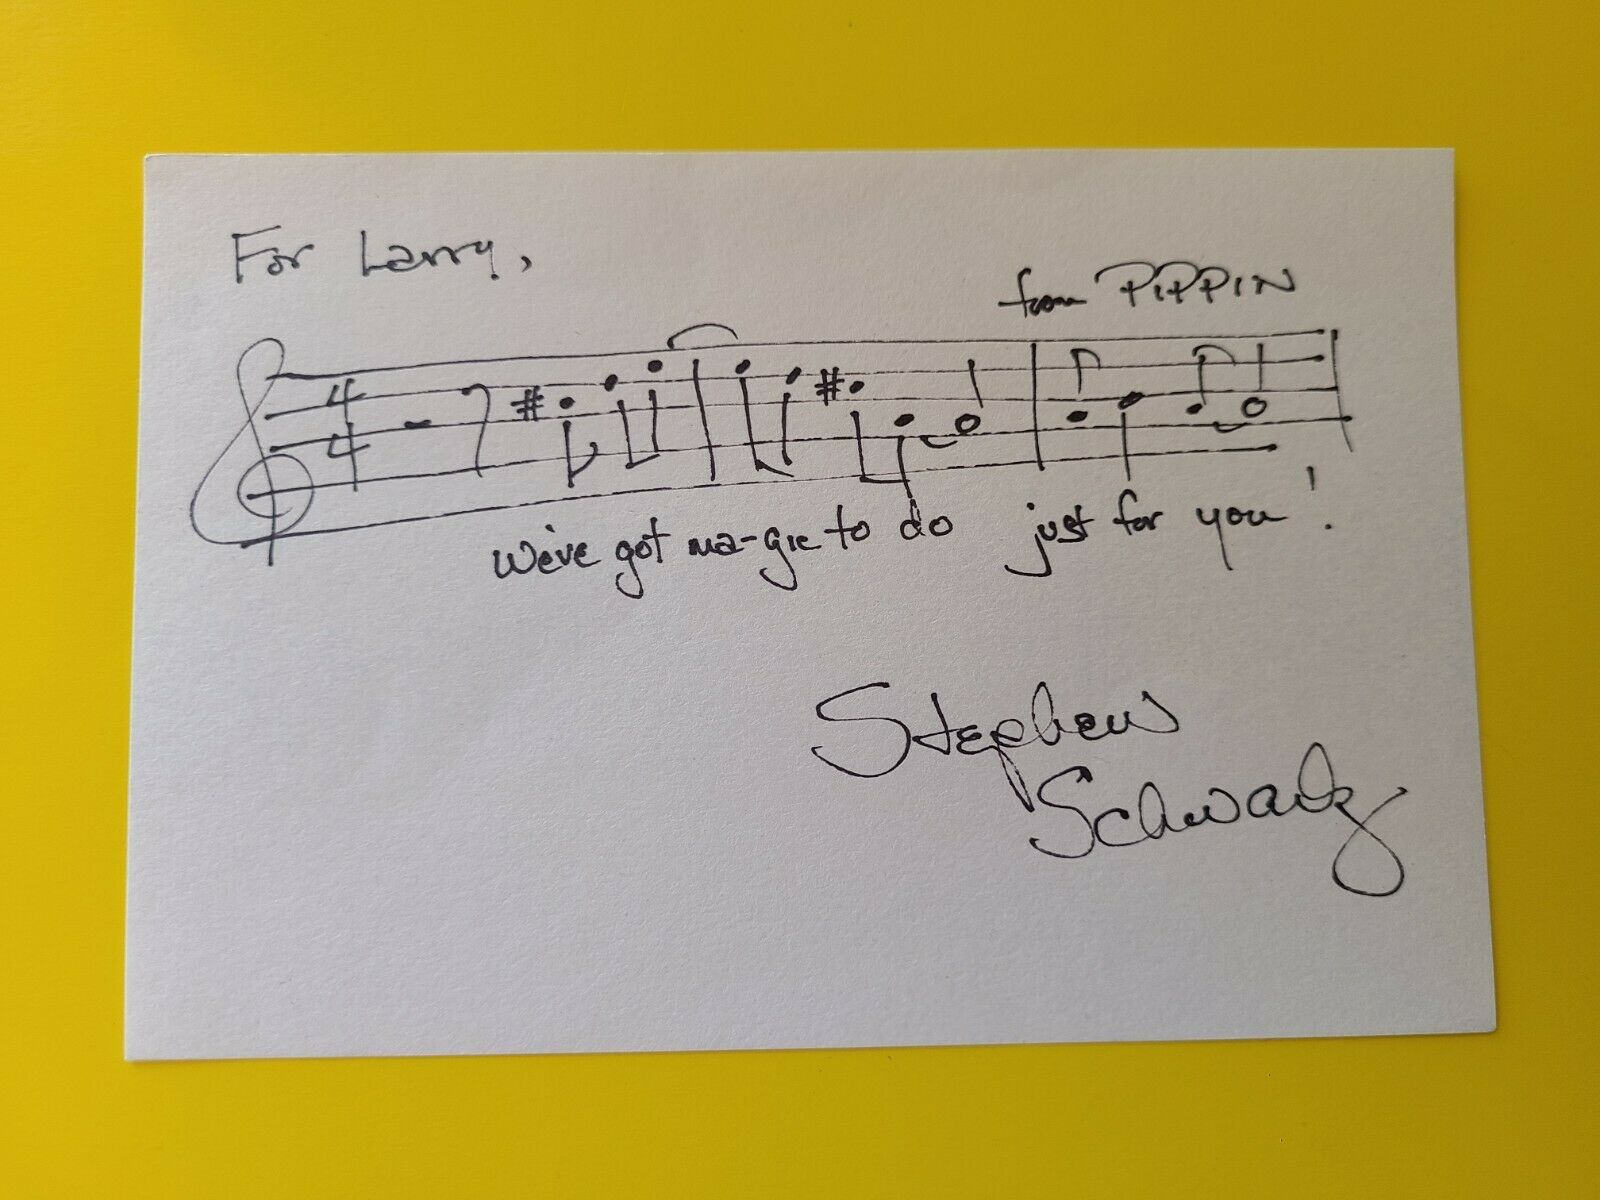 For Larry,
from PIPPIN
4
4
We've got ma-gic to do just for you!
Stephen
Schwartz